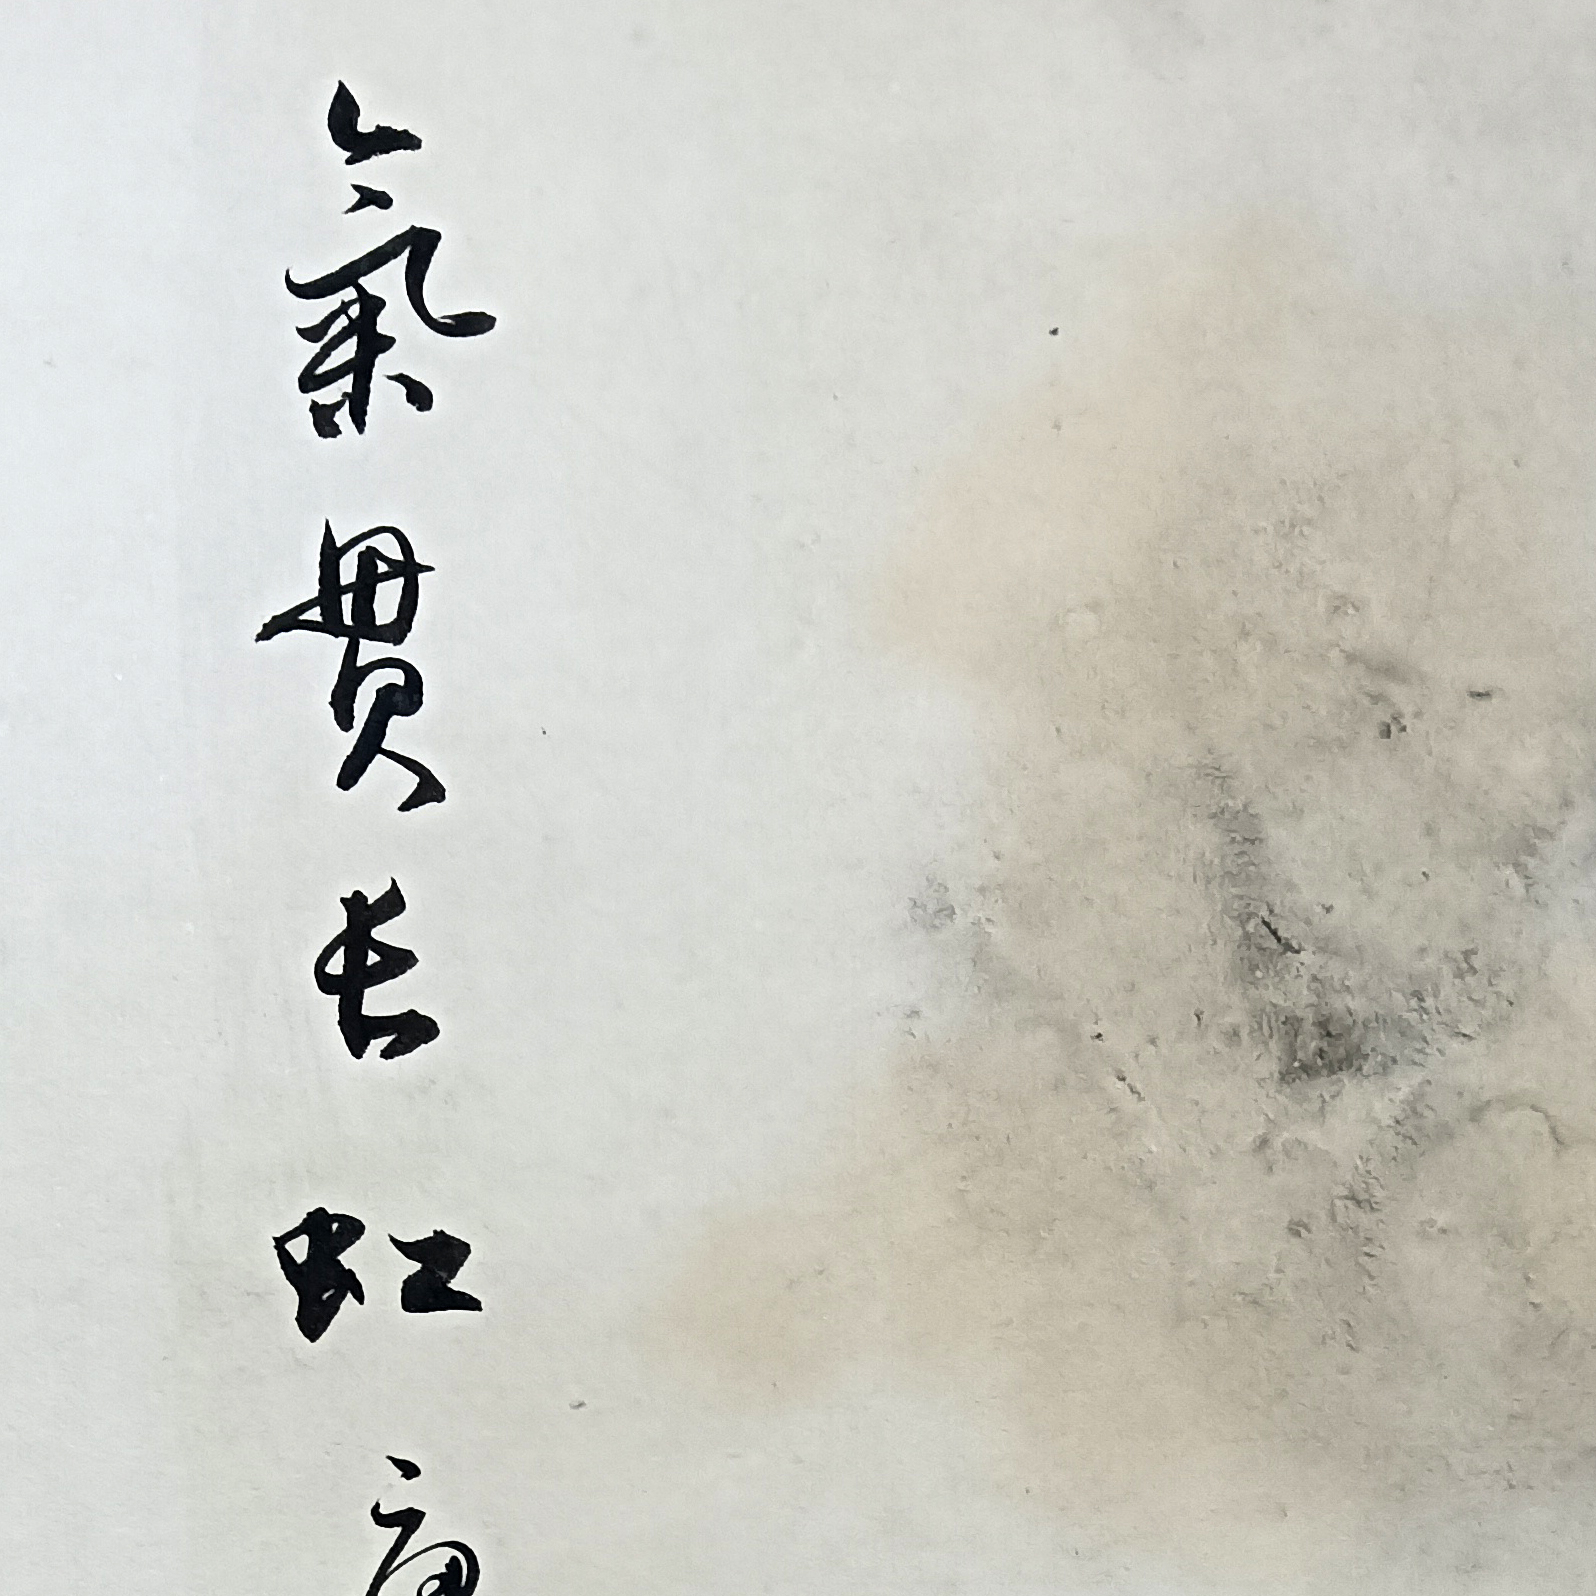 氣貫長虹